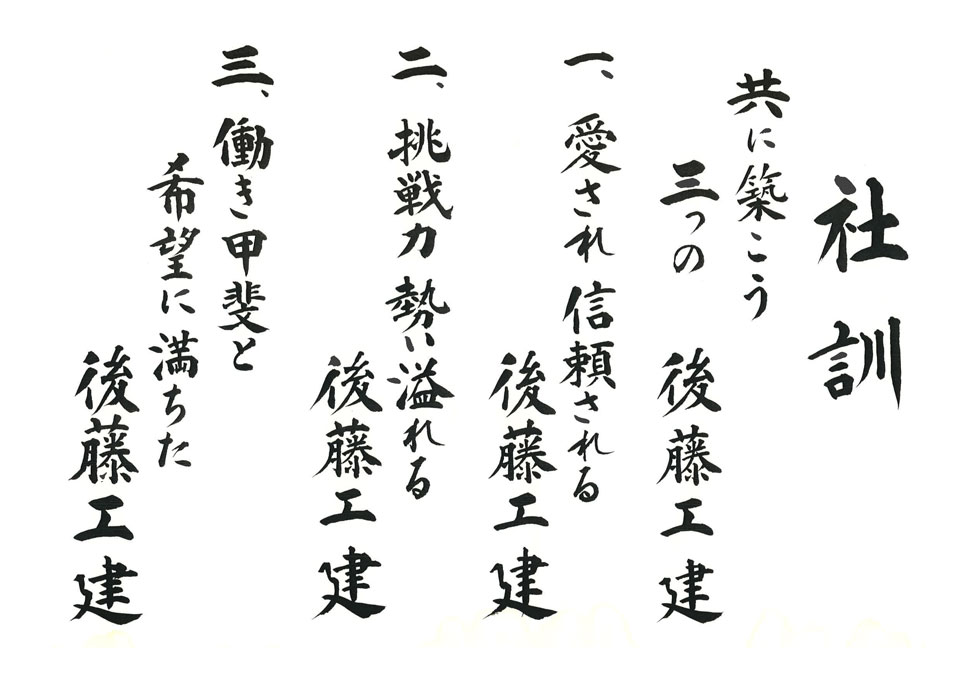 社訓
共に築こう
三つの
後藤工建
一、愛され信頼される
後藤工建
二、挑戦力勢い溢れる
後藤工建
三、働き甲斐と
希望に満ちた
後藤工建